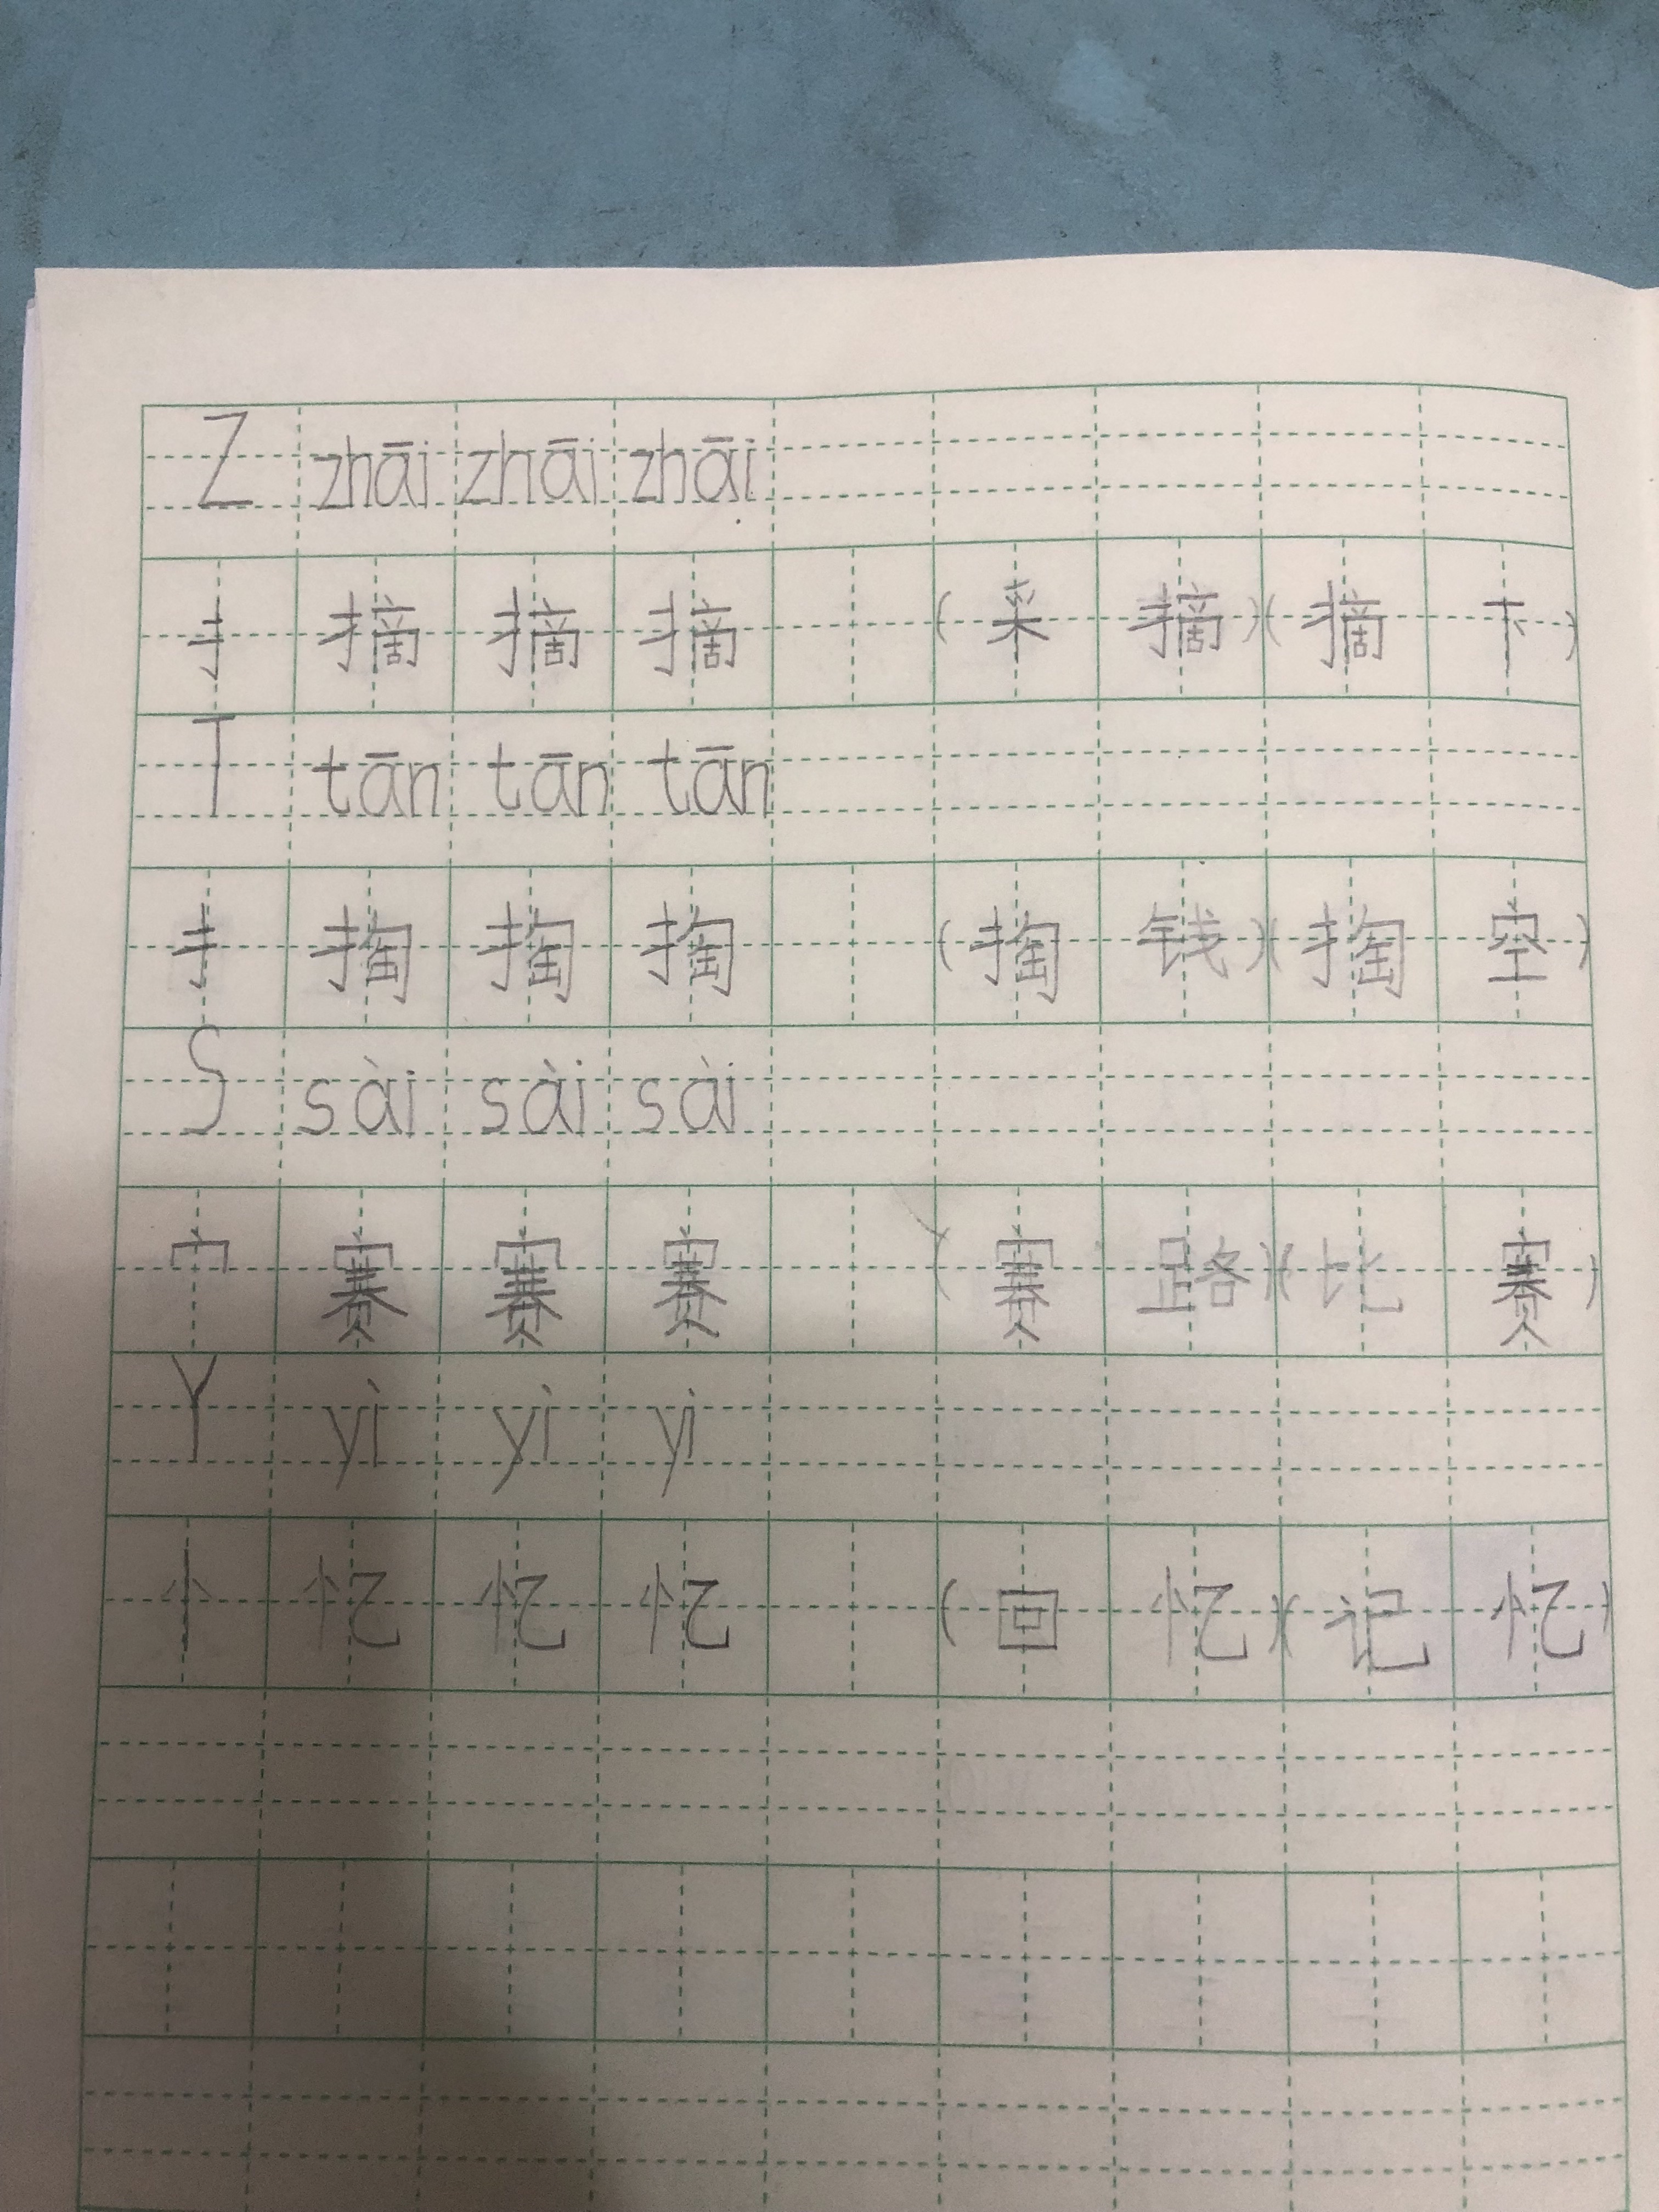 Z zhāi zhāi zhāi
扌 摘 摘 摘 (采 摘)(摘 下)
T tān tān tān
扌 掏 掏 掏 (掏 钱)(掏 空)
S sài sài sài
宀 赛 赛 赛 (赛 路)(比 赛)
Y yì yì yì
忄 忆 忆 忆 (回 忆)(记 忆)